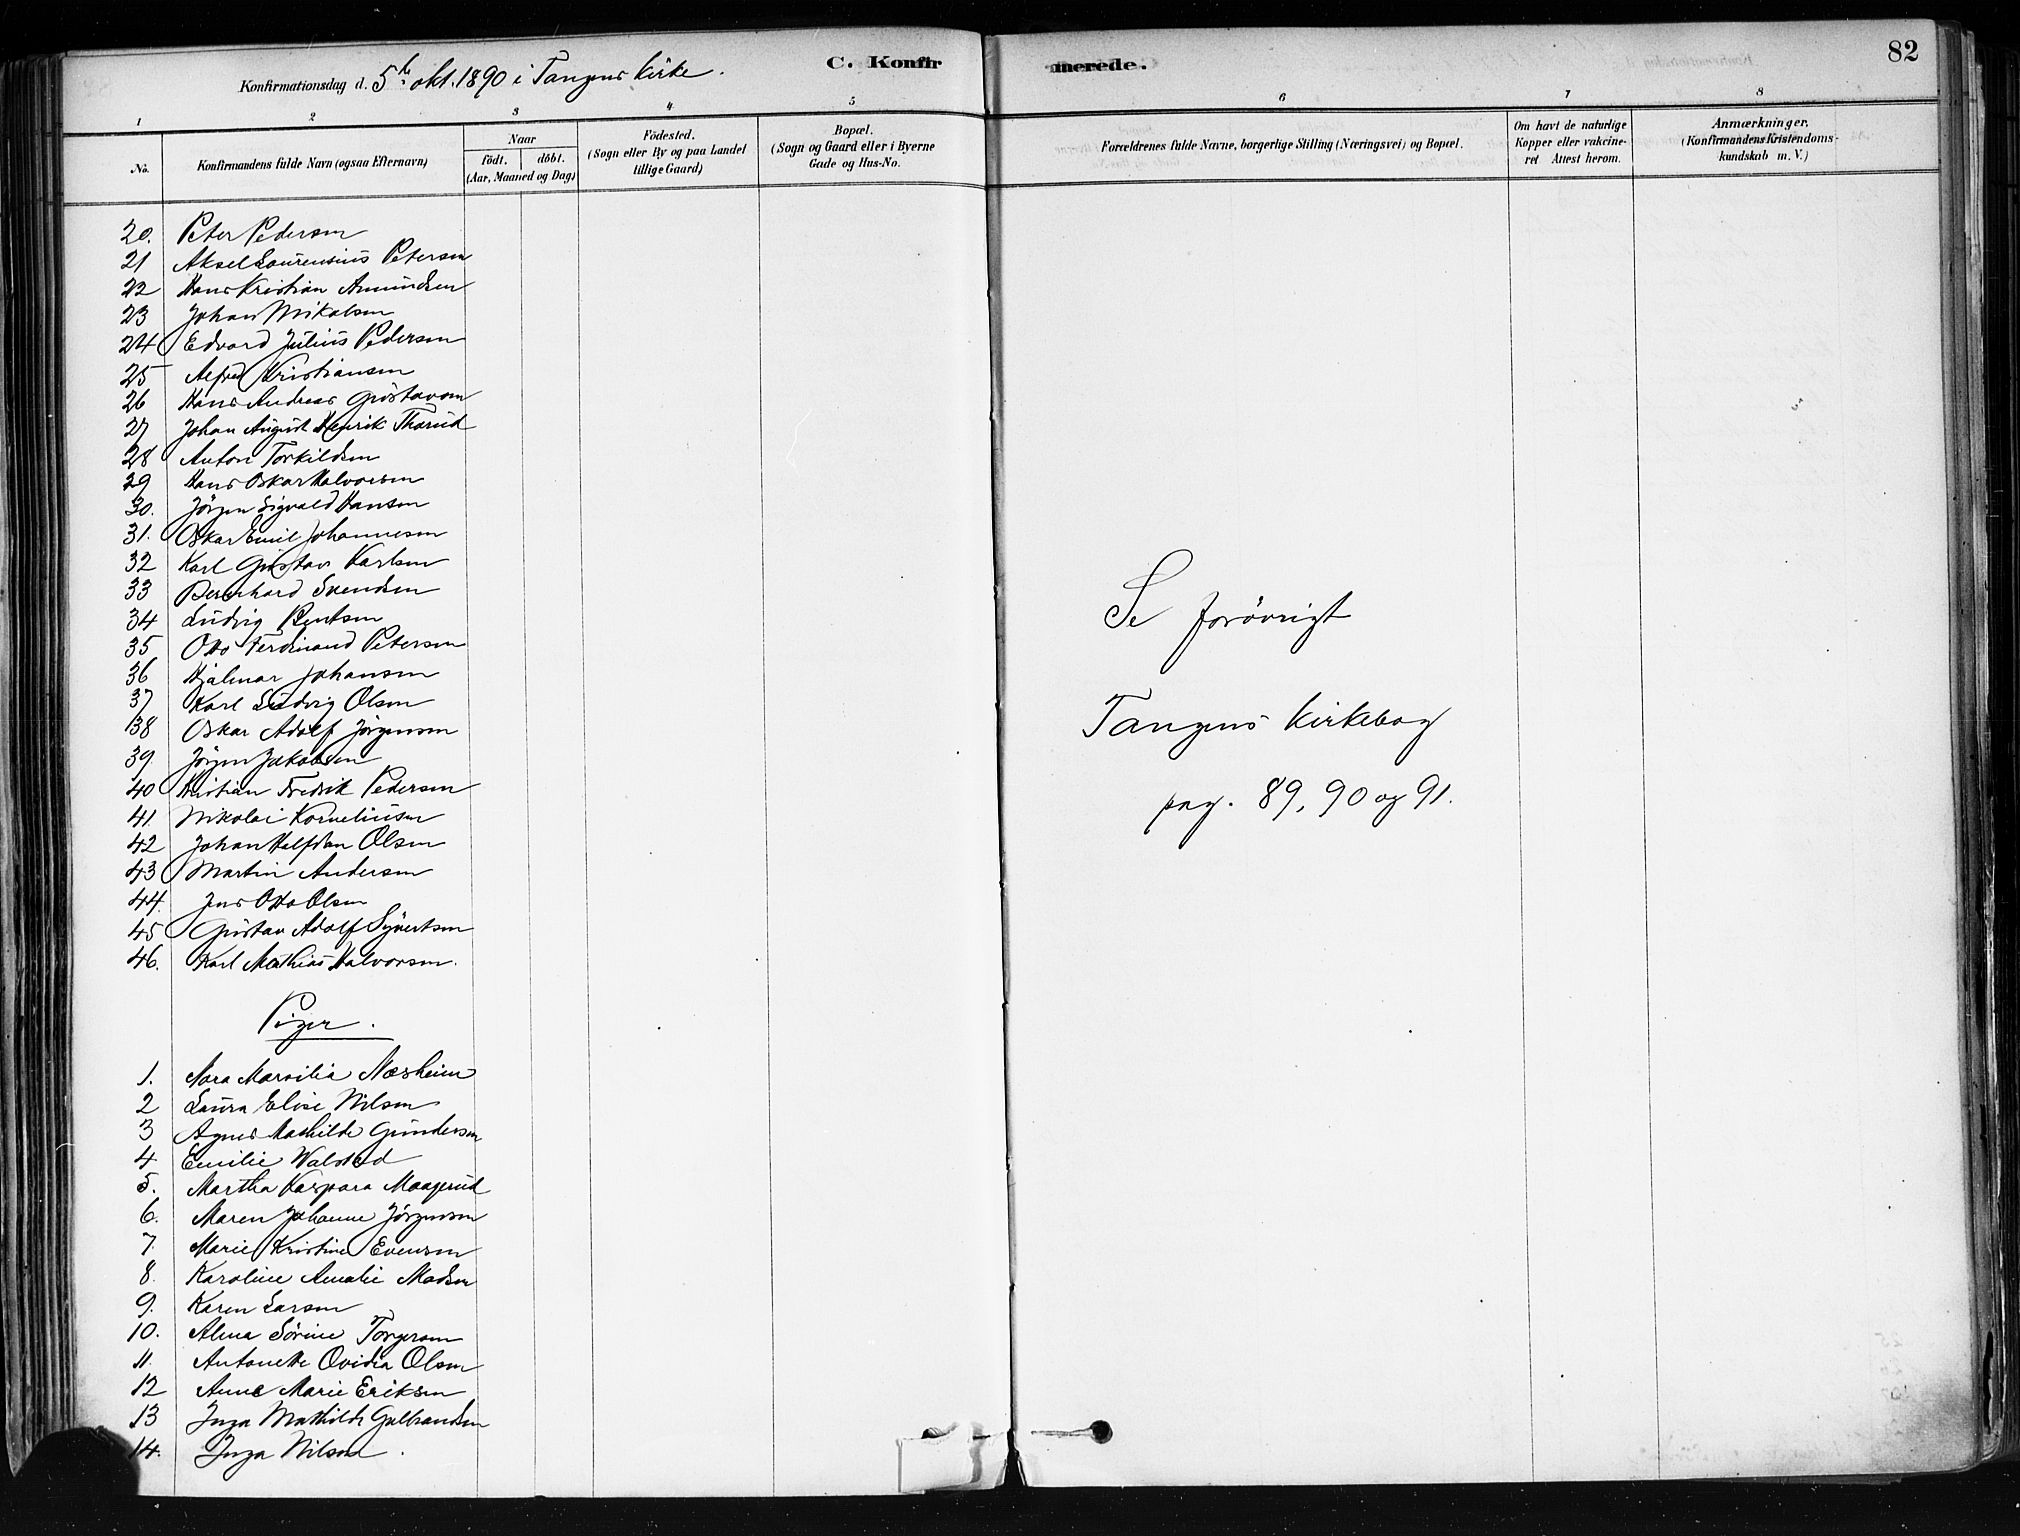 82
Konfirmationsdag d. 5te okt. 1890 i Tangens Kirke.
C. Konfirmerede.
1 2 3 4 5 6 7 8
No.
Konfirmandens fulde Navn (ogsaa Efternavn)
Naar
födt. döbt.
(Aar, Maaned og Dag)
Födested.
(Sogn eller By og paa Landet
tillige Gaard)
Bopæl.
(Sogn og Gaard eller i Byerne
Gade og Hus-No.
Forældrenes fulde Navne, borgerlige Stilling (Næringsvei) og Bopæl.
Om havt de naturlige
Kopper eller vakcine-
ret Attest herom.
Anmærkninger.
(Konfirmandens Kristendoms-
kundskab m. V.)
20. Peter Pedersen
21 Aksel Laurensius Petersen
22 Hans Kristian Amundsen
23 Johan Mikalsen
24 Edvard Julius Pedersen
25 Alfred Kristiansen
26 Hans Andreas Gustavsen
27 Johan August Henrik Thorud
28 Anton Torkildsen
29 Hans Oskar Halvorsen
30. Jörgen Sigvald Hansen
31. Oskar Emil Johannesen
32 Karl Gustav Karlsen
33 Bernhard Svendsen
34 Ludvig Bentsen
35 Otto Ferdinand Petersen
36 Hjalmar Johansen
37 Karl Ludvig Olsen
38 Oskar Adolf Jörgensen
39. Jörgen Jakobsen
40 Kristian Fredrik Pedersen
41. Nikolai Korneliusen
42 Johan Halfdan Olsen
43 Martin Andersen
44. Jens Otto Olsen
45 Gustav Adolf Syvertsen
46. Karl Mathias Halvorsen.
Piger.
1. Nora Marsilia Næsheim
2 Laura Elise Nilsen
3 Agnes Mathilde Gundersen
4 Emilie Walsted
5. Martha Kaspara Maagerud
6. Maren Johanne Jörgensen
7. Marie Kristine Evensen
8. Karoline Amalie Madsen
9. Karen Larsen
10. Alma Sörine Torgersen
11. Antonette Ovidia Olsen
12 Anne Marie Eriksen
13 Inga Mathilde Gulbrandsen
14. Inga Nilsen.
Se forövrigt
Tangens Kirkebog
pag. 89, 90 og 91.